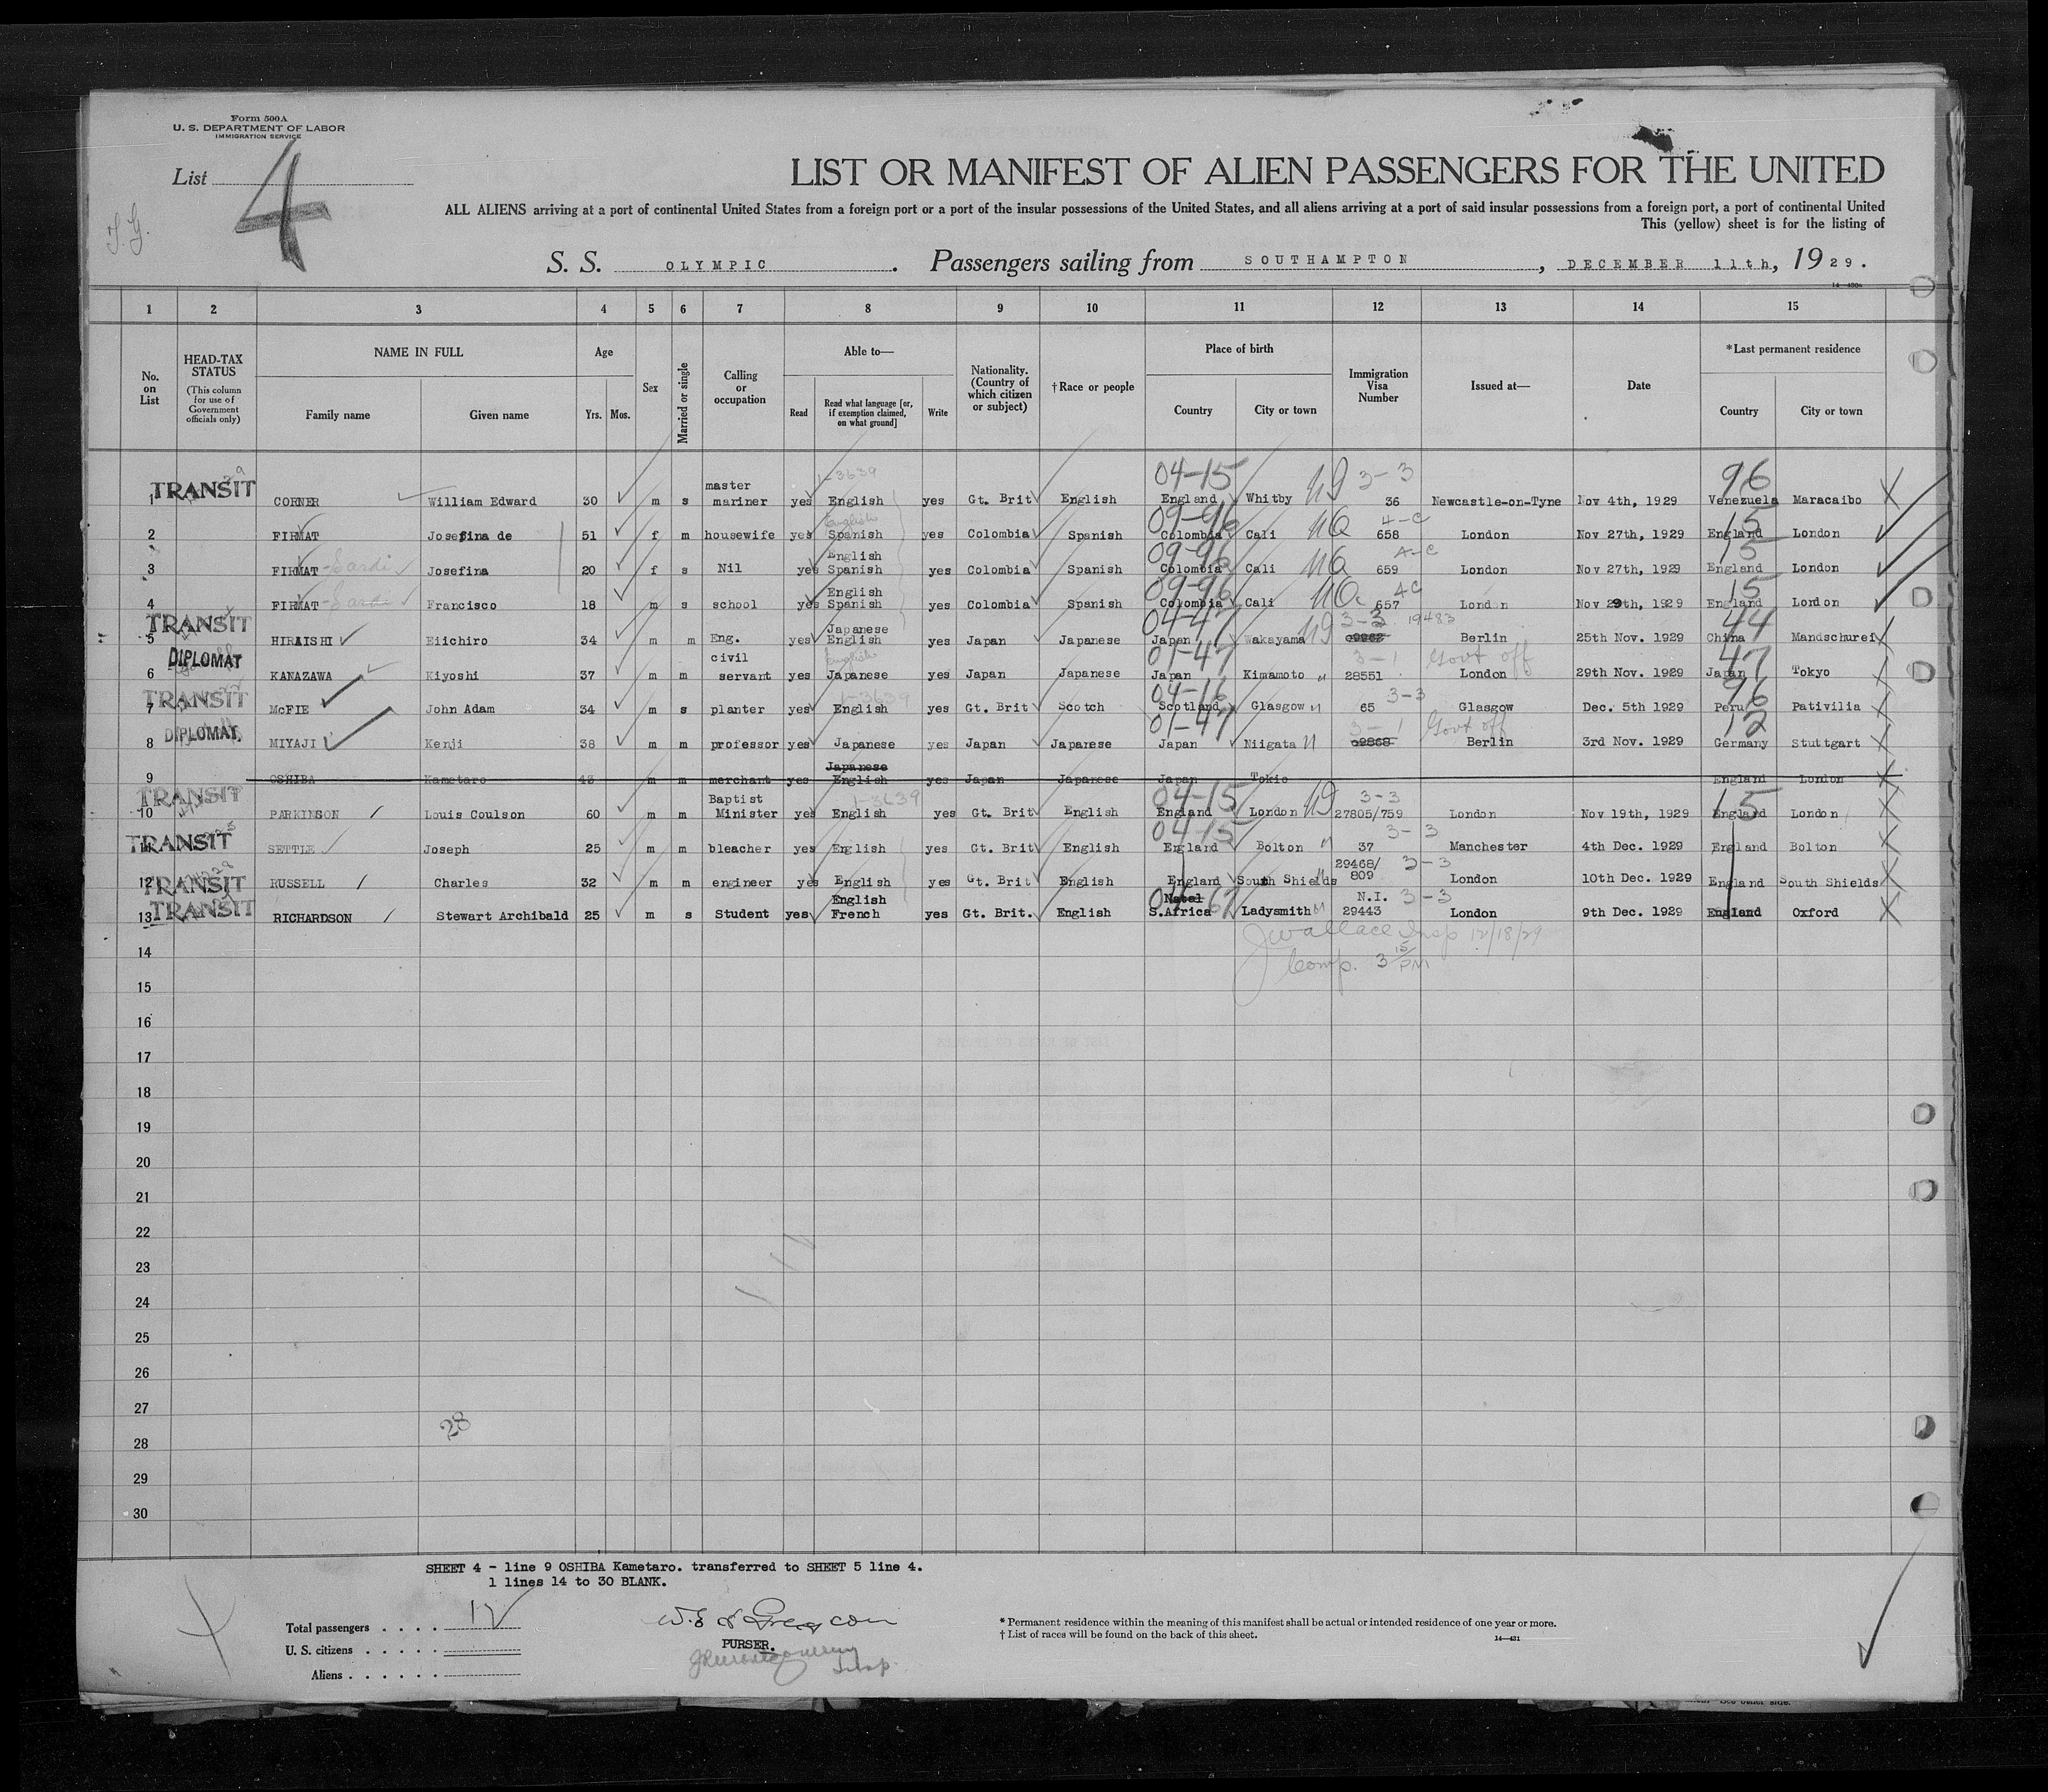 Form 500A
U. S. DEPARTMENT OF LABOR
IMMIGRATION SERVICE
List 4
LIST OR MANIFEST OF ALIEN PASSENGERS FOR THE UNITED
ALL ALIENS arriving at a port of continental United States from a foreign port or a port of the insular possessions of the United States, and all aliens arriving at a port of said insular possessions from a foreign port, a port of continental United
This (yellow) sheet is for the listing of
S. S. OLYMPIC. Passengers sailing from SOUTHAMPTON, DECEMBER 11th, 1929.
1 2 3 4 5 6 7 8 9 10 11 12 13 14 15
No. on List
HEAD-TAX STATUS (This column for use of Government officials only)
NAME IN FULL
Family name Given name
Age
Yrs. Mos.
Sex
Married or single
Calling or occupation
Able to—
Read Read what language [or, if exemption claimed, on what ground] Write
Nationality. (Country of which citizen or subject)
†Race or people
Place of birth
Country City or town
Immigration Visa Number
Issued at—
Date
*Last permanent residence
Country City or town
1 TRANSIT CORNER William Edward 30 m s master mariner yes 1-3639 English yes Gt. Brit English 04-15 England Whitby 3-3 36 Newcastle-on-Tyne Nov 4th, 1929 96 Venezuela Maracaibo
2 FIRMAT Josefina de 51 f m housewife yes English Spanish yes Colombia Spanish 09-96 Colombia Cali 4-C 658 London Nov 27th, 1929 15 England London
3 FIRMAT-Sardi Josefina 20 f s Nil yes English Spanish yes Colombia Spanish 09-96 Colombia Cali 4-C 659 London Nov 27th, 1929 15 England London
4 FIRMAT-Sardi Francisco 18 m s school yes English Spanish yes Colombia Spanish 09-96 Colombia Cali 4C 657 London Nov 29th, 1929 15 England London
5 TRANSIT HIRAISHI Eiichiro 34 m m Eng. yes Japanese English yes Japan Japanese 04-47 Japan Wakayama 3-3 19483 Berlin 25th Nov. 1929 44 China Mandschurei
6 DIPLOMAT KANAZAWA Kiyoshi 37 m m civil servant yes English Japanese yes Japan Japanese 01-47 Japan Kimamoto 3-1 Govt off 28551 London 29th Nov. 1929 47 Japan Tokyo
7 TRANSIT McFIE John Adam 34 m s planter yes 1-3639 English yes Gt. Brit Scotch 04-16 Scotland Glasgow 3-3 65 Glasgow Dec. 5th 1929 96 Peru Pativilia
8 DIPLOMAT MIYAJI Kenji 38 m m professor yes Japanese yes Japan Japanese 01-47 Japan Niigata 3-1 Govt off Berlin 3rd Nov. 1929 12 Germany Stuttgart
9 OSHIBA Kametaro 43 m m merchant yes Japanese English yes Japan Japanese Japan Tokio England London
10 TRANSIT PARKINSON Louis Coulson 60 m m Baptist Minister yes 1-3639 English yes Gt. Brit English 04-15 England London 3-3 27805/759 London Nov 19th, 1929 15 England London
11 TRANSIT SETTLE Joseph 25 m m bleacher yes English yes Gt. Brit English 04-15 England Bolton 3-3 37 Manchester 4th Dec. 1929 England Bolton
12 TRANSIT RUSSELL Charles 32 m m engineer yes English yes Gt. Brit English England South Shields 29468/809 3-3 London 10th Dec. 1929 England South Shields
13 TRANSIT RICHARDSON Stewart Archibald 25 m s Student yes English French yes Gt. Brit. English 04 62 Natal S.Africa Ladysmith N.I. 3-3 29443 London 9th Dec. 1929 England Oxford
J Wallace Insp 12/18/29
Comp. 3 15/PM
14
15
16
17
18
19
20
21
22
23
24
25
26
27
28
28
29
30
SHEET 4 - line 9 OSHIBA Kametaro. transferred to SHEET 5 line 4.
1 lines 14 to 30 BLANK.
Total passengers . . . . 12
U. S. citizens . . . . .
Aliens . . . . . .
PURSER.
Insp.
* Permanent residence within the meaning of this manifest shall be actual or intended residence of one year or more.
† List of races will be found on the back of this sheet.
14—431